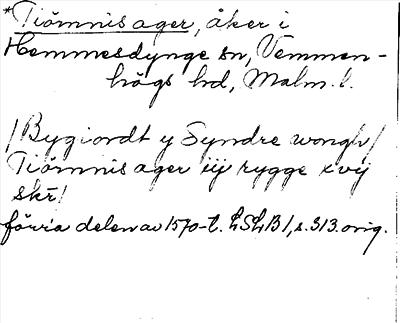 *Tiömnis ager, åker i
Hemmesdynge sn, Vemmen-
högs hd, Malm. l.
/Bygiordt y Syndre wongh/
Tiömnis ager iij rygge xvij
skr/
förra delen av 1570-t. LSLB 1, s. 313. orig.